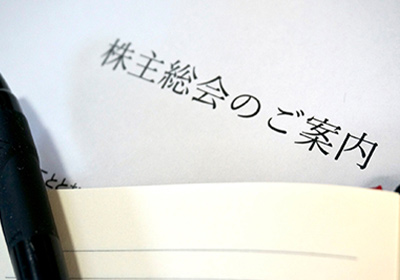 株主総会のご案内